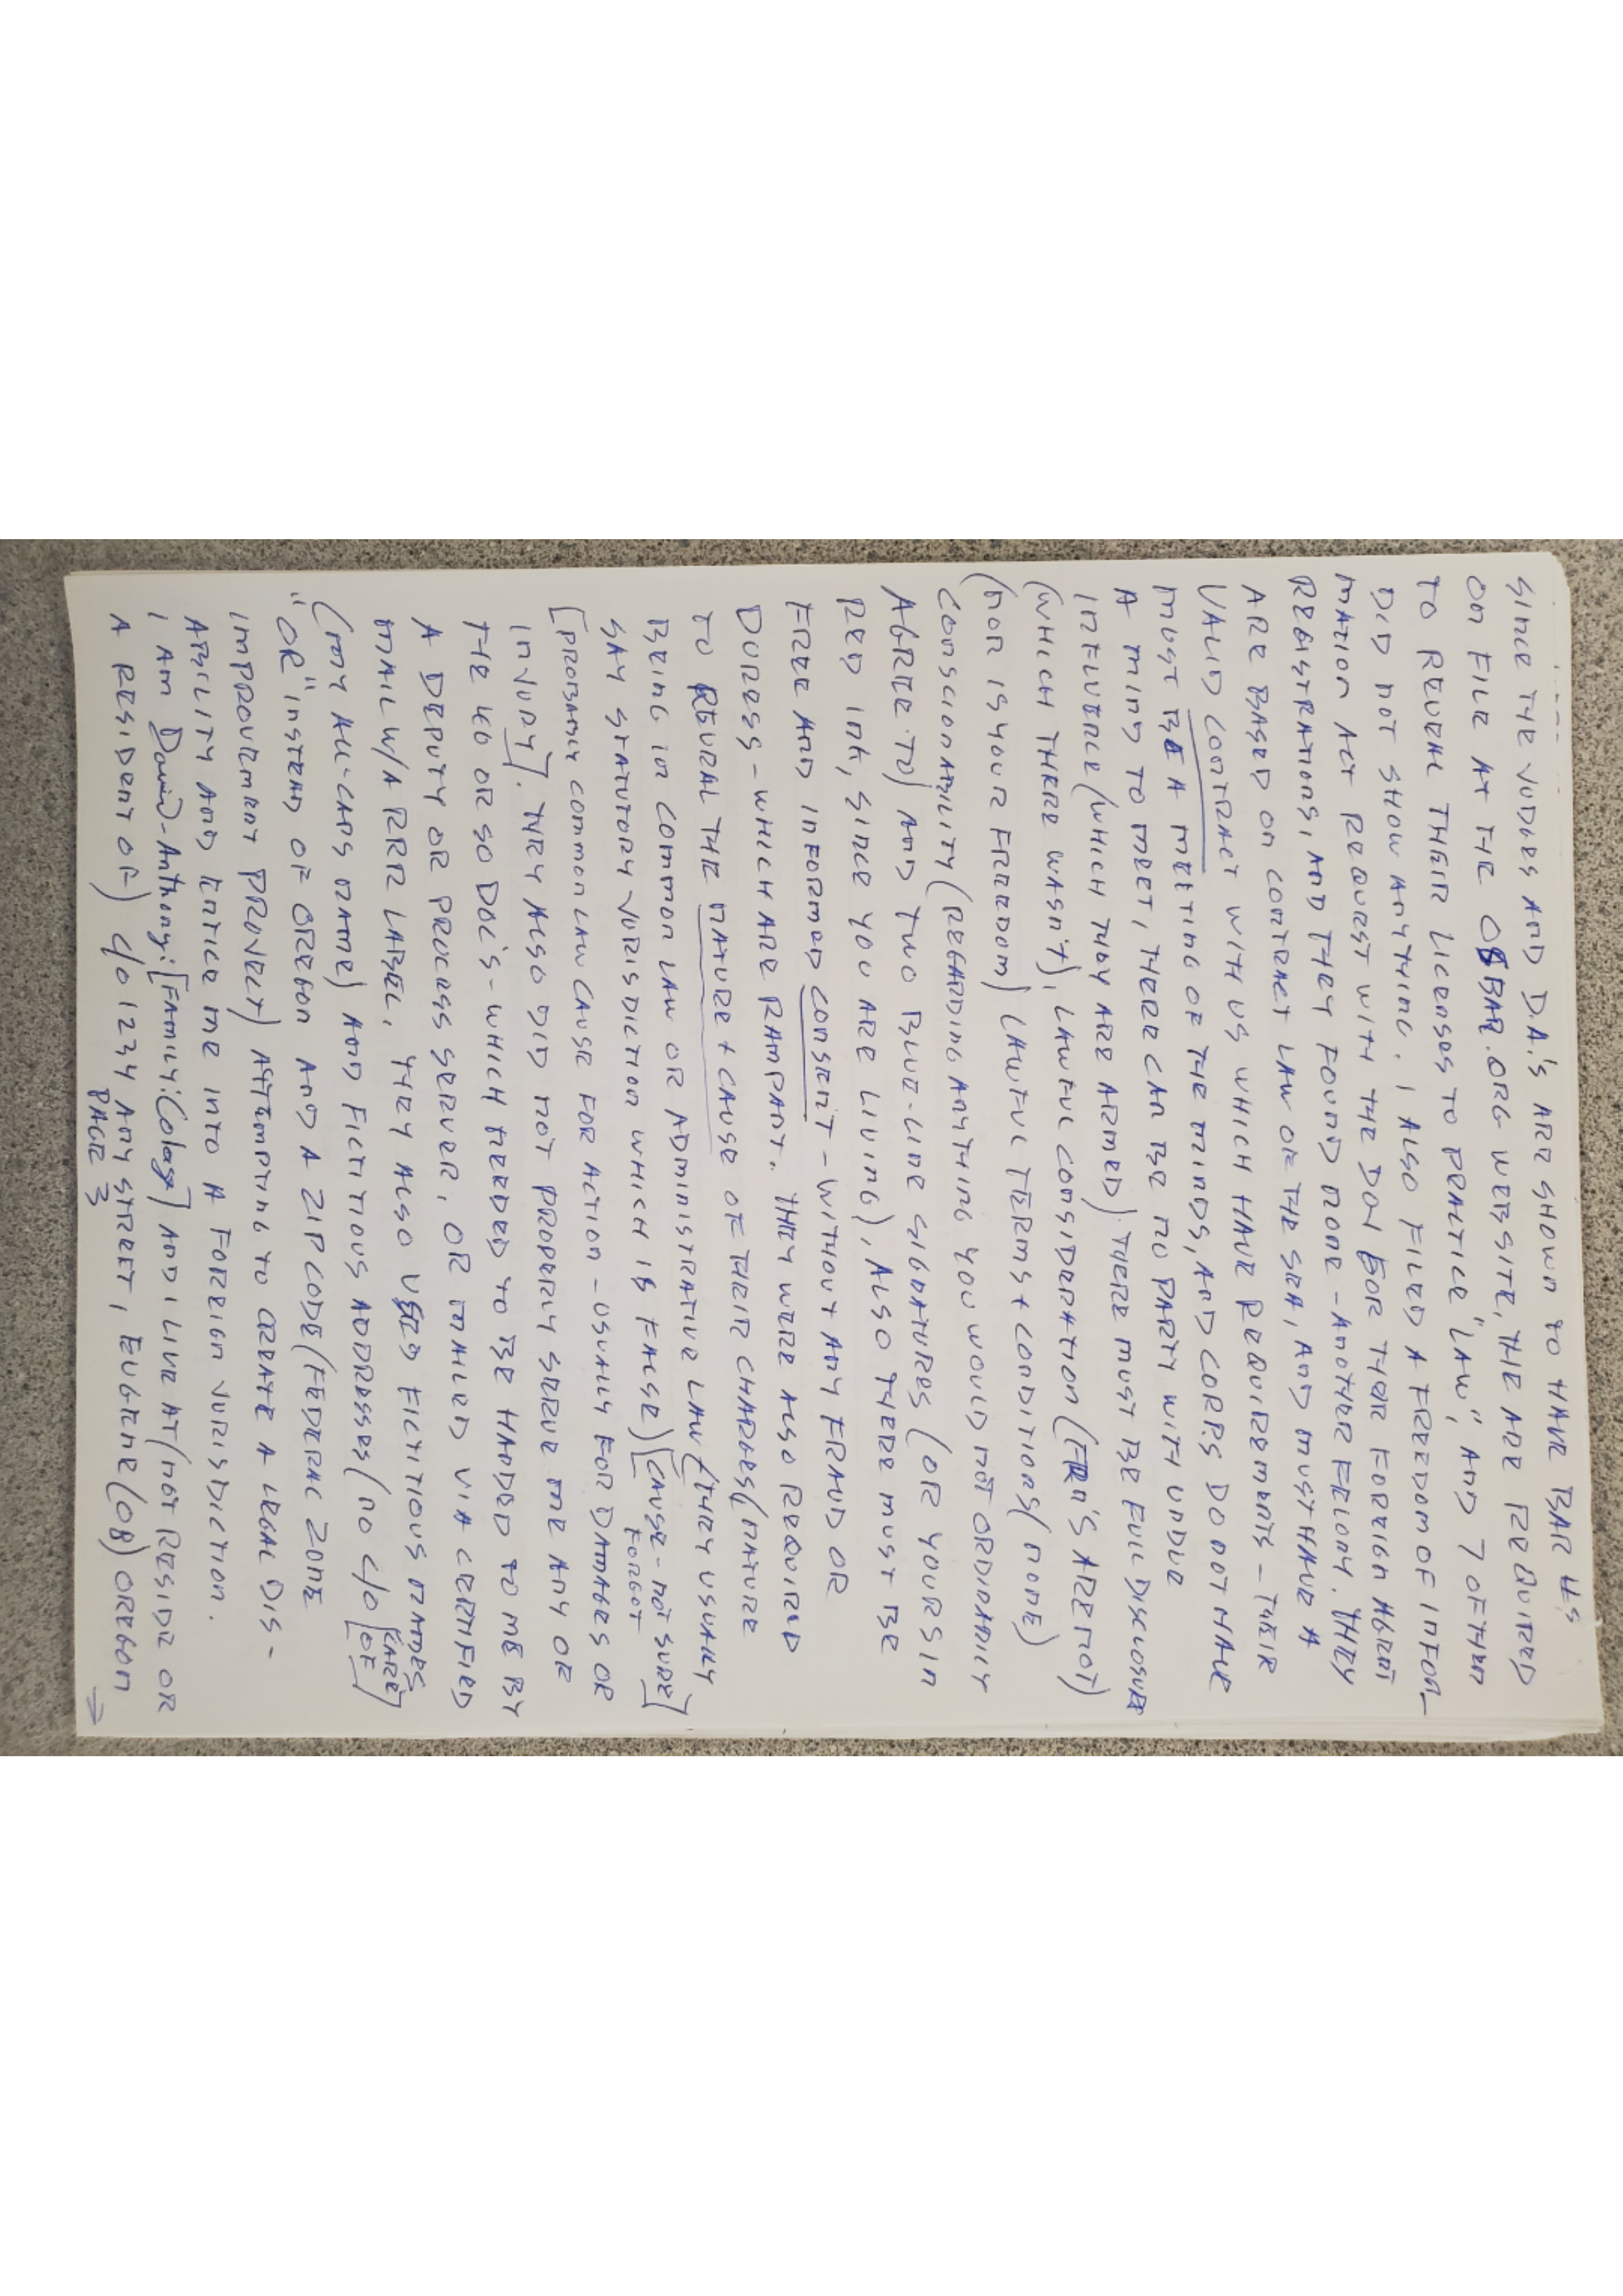 SINCE THE JUDGES AND D.A.'S ARE SHOWN TO HAVE BAR #S
ON FILE AT THE OSBAR.ORG WEBSITE, THE ARE REQUIRED
TO REVEAL THEIR LICENSES TO PRACTICE "LAW", AND 7 OF THEM
DID NOT SHOW ANYTHING. I ALSO FILED A FREEDOM OF INFOR-
MATION ACT REQUEST WITH THE DOJ FOR THEIR FOREIGN AGENT
REGISTRATIONS, AND THEY FOUND NONE - ANOTHER FELONY. THEY
ARE BASED ON CONTRACT LAW OF THE SEA, AND MUST HAVE A
VALID CONTRACT WITH US WHICH HAVE REQUIREMENTS - THEIR
MUST BE A MEETING OF THE MINDS, AND CORPS DO NOT HAVE
A MIND TO MEET, THERE CAN BE NO PARTY WITH UNDUE
INFLUENCE (WHICH THEY ARE ARMED) THERE MUST BE FULL DISCLOSURE
(WHICH THERE WASN'T), LAWFUL CONSIDERATION (FRN'S ARE NOT)
(NOR IS YOUR FREEDOM) LAWFUL TERMS + CONDITIONS (NONE)
CONSCIONABILITY (REGARDING ANYTHING YOU WOULD NOT ORDINARILY
AGREE TO) AND TWO BLUE-LINE SIGNATURES (OR YOURS IN
RED INK, SINCE YOU ARE LIVING), ALSO THERE MUST BE
FREE AND INFORMED CONSENT - WITHOUT ANY FRAUD OR
DURESS - WHICH ARE RAMPANT. THEY WERE ALSO REQUIRED
TO REVEAL THE NATURE + CAUSE OF THEIR CHARGES (NATURE
BEING IN COMMON LAW OR ADMINISTRATIVE LAW (THEY USUALLY
SAY STATUTORY JURISDICTION WHICH IS FALSE) [CAUSE - NOT SURE]
FORGOT
[PROBABLY COMMON LAW CAUSE FOR ACTION - USUALLY FOR DAMAGES OR
INJURY]. THEY ALSO DID NOT PROPERLY SERVE ME ANY OF
THE 40 OR SO DOC'S - WHICH NEEDED TO BE HANDED TO ME BY
A DEPUTY OR PROCESS SERVER, OR MAILED VIA CERTIFIED
MAIL W/A RRR LABEL, THEY ALSO USED FICTITOUS NAMES
(MY ALL-CAPS NAME) AND FICTITOUS ADDRESSES (NO C/O [CARE OF]
"OR" INSTEAD OF OREGON AND A ZIP CODE (FEDERAL ZONE
IMPROVEMENT PROJECT) ATTEMPTING TO CREATE A LEGAL DIS-
ABILITY AND ENTICE ME INTO A FOREIGN JURISDICTION.
I AM David-Anthony: [FAMILY: Colasn] AND I LIVE AT (NOT RESIDE OR
A RESIDENT OF) C/O 1234 ANY STREET, EUGENE (08) OREGON
PAGE 3 →